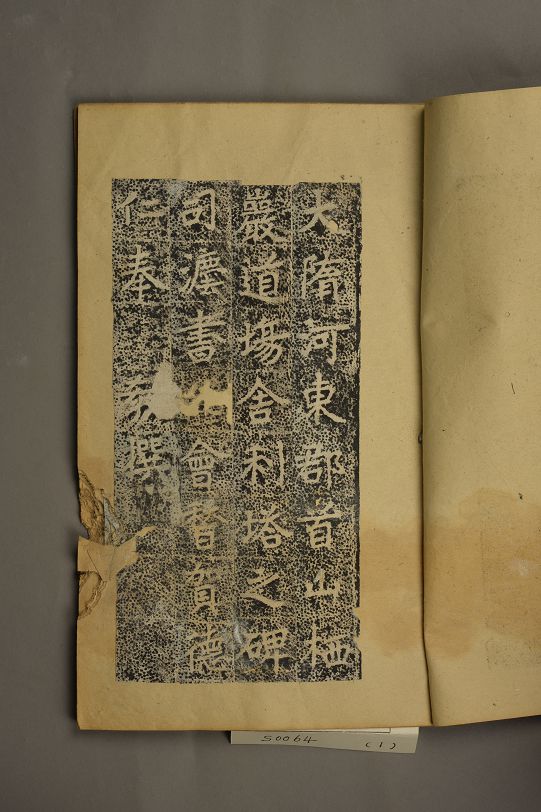 大隋河東郡首山栖
巖道場舍利塔之碑
司灋書佐會稽賀德
仁奉 敕撰
50064 (1)